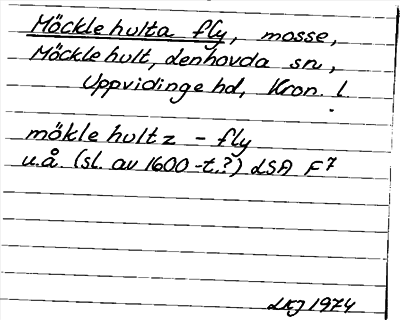 Möcklehulta fly, mosse,
Möcklehult, Lenhovda sn,
Uppvidinge hd, Kron. l.
mökle hultz - fly
u.å. (sl. av 1600-t.?) LSA F7
LKJ 1974